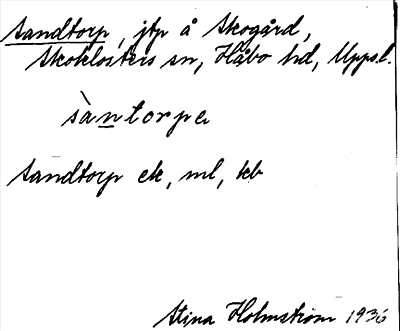 Sandtorp, jtp å Skogård,
Skoklosters sn, Håbo hd, Upps.l.
sàntorpa
Sandtorp ek, ml, kb
Stina Holmström 1936